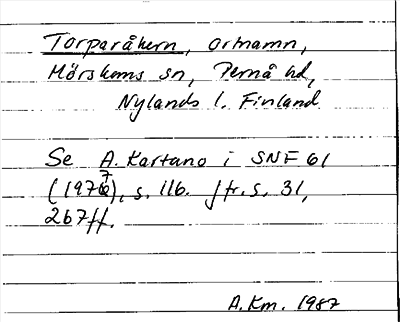 Torparåkern, ortnamn,
Mörskoms sn, Pernå hd,
Nylands l. Finland
Se A. Kartano i SNF 61
(1977), s. 116. Jfr. s. 31,
267ff.
A.Km. 1987